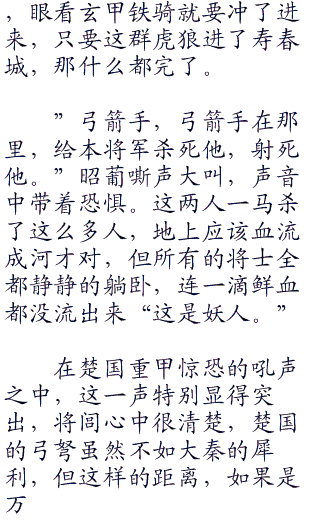 ，眼看玄甲铁骑就要冲了进
来，只要这群虎狼进了寿春
城，那什么都完了。
”弓箭手，弓箭手在那
里，给本将军杀死他，射死
他。”昭葡嘶声大叫，声音
中带着恐惧。这两人一马杀
了这么多人，地上应该血流
成河才对，但所有的将士全
都静静的躺卧，连一滴鲜血
都没流出来“这是妖人。”
在楚国重甲惊恐的吼声
之中，这一声特别显得突
出，将闾心中很清楚，楚国
的弓弩虽然不如大秦的犀
利，但这样的距离，如果是
万